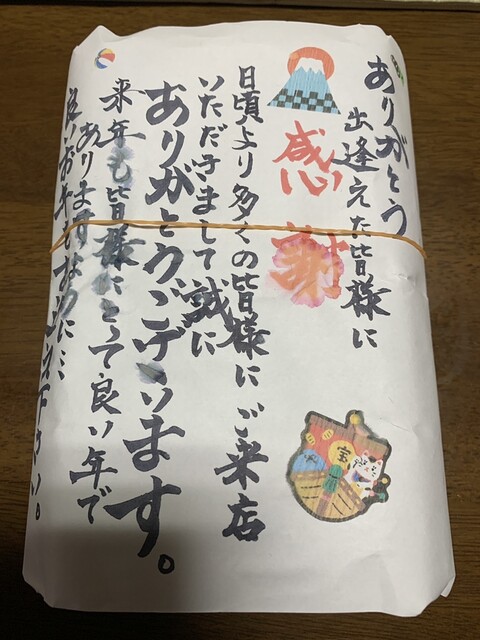 ありがとう
出逢えた皆様に
感謝
日頃より多くの皆様にご来店
いただきまして誠に
ありがとうございます。
来年も皆様にとって良い年で
あります
良いお年をお迎え下さい。
宝